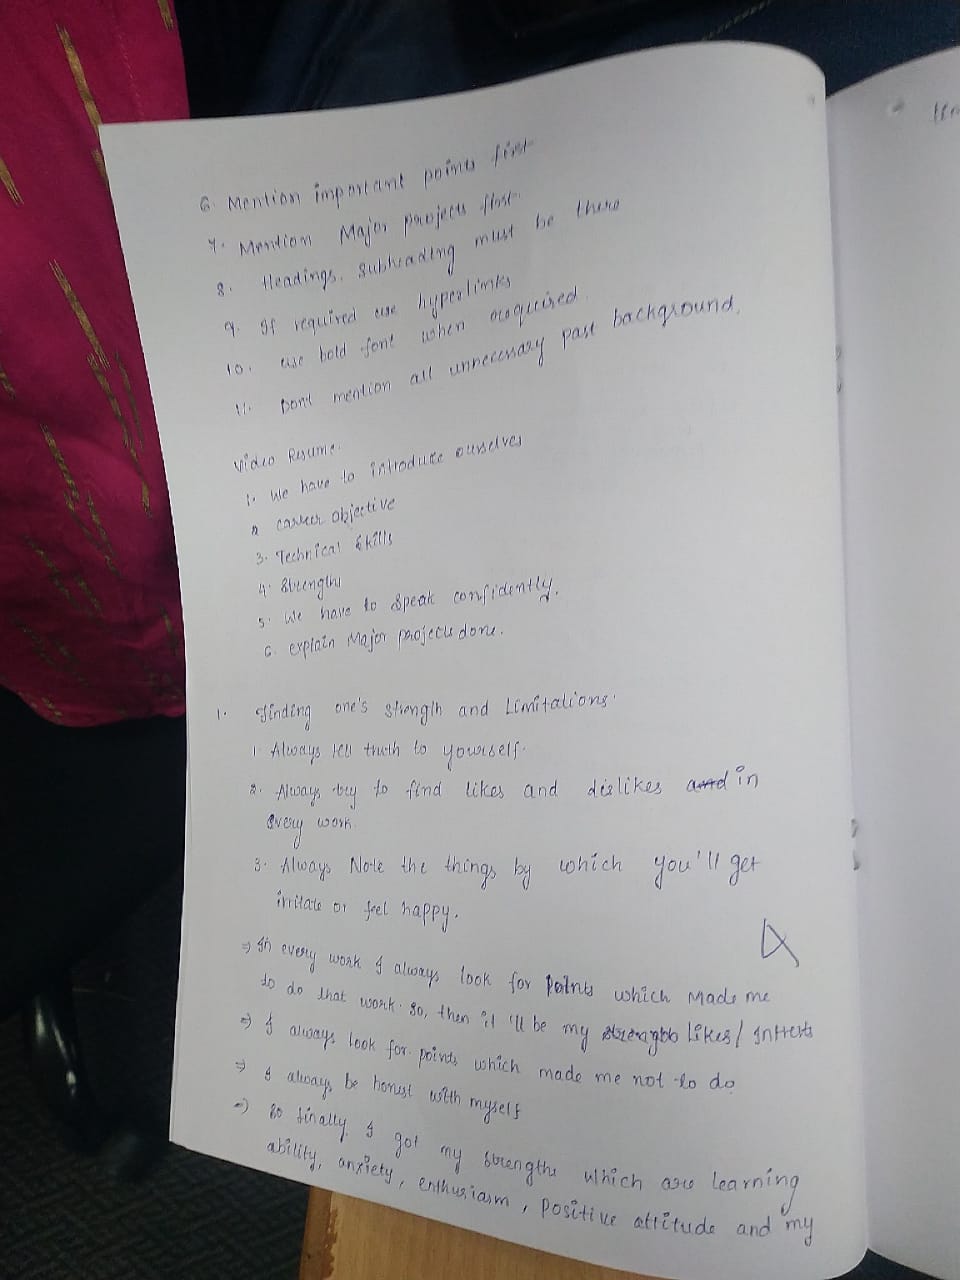 6. Mention important points first
7. Mention Major projects first.
8. Headings, Subheading must be there
9. If required use hyperlinks
10. use bold font when required.
11. Don't mention all unnecessary past background.
Video Resume.
1. We have to introduce ourselves
2 career objective
3. Technical skills
4. Strengths
5. We have to speak confidently.
6. explain Major projects done.
1. Finding one's strength and Limitations.
1 Always tell truth to yourself.
2. Always try to find likes and dislikes and in
every work.
3. Always Note the things by which you'll get
irritate or feel happy.
⇒ In every work I always look for points which Made me
to do that work. So, then it 'll be my strengths Likes/
⇒ I always look for points which made me not to do
⇒ I always be honest with myself
⇒ So finally, I got my strengths which are learning
ability, anxiety, enthusiasm, positive attitude and my